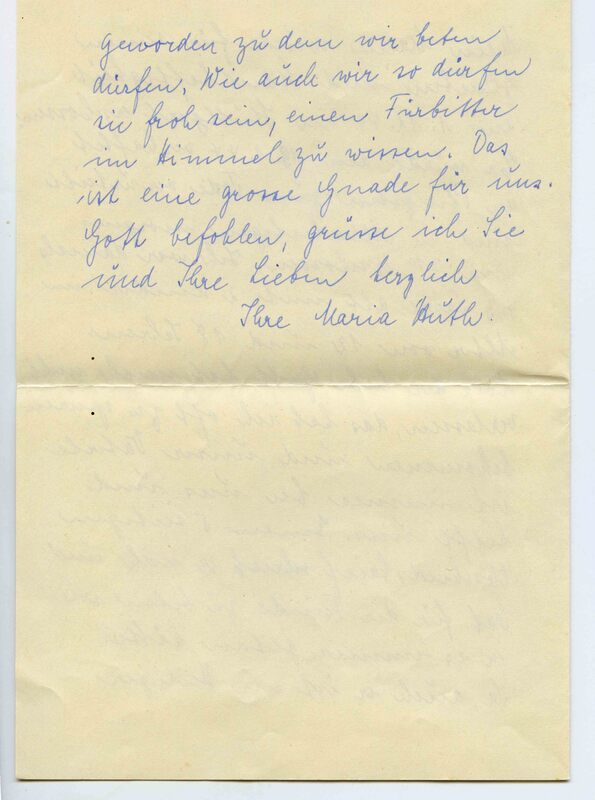 geworden zu dem wir beten
dürfen. Wie auch wir so dürfen
sie froh sein, einen Fürbitter
im Himmel zu wissen. Das
ist eine grosse Gnade für uns.
Gott befohlen, grüsse ich Sie
und Ihre Lieben herzlich
Ihre Maria Huth.